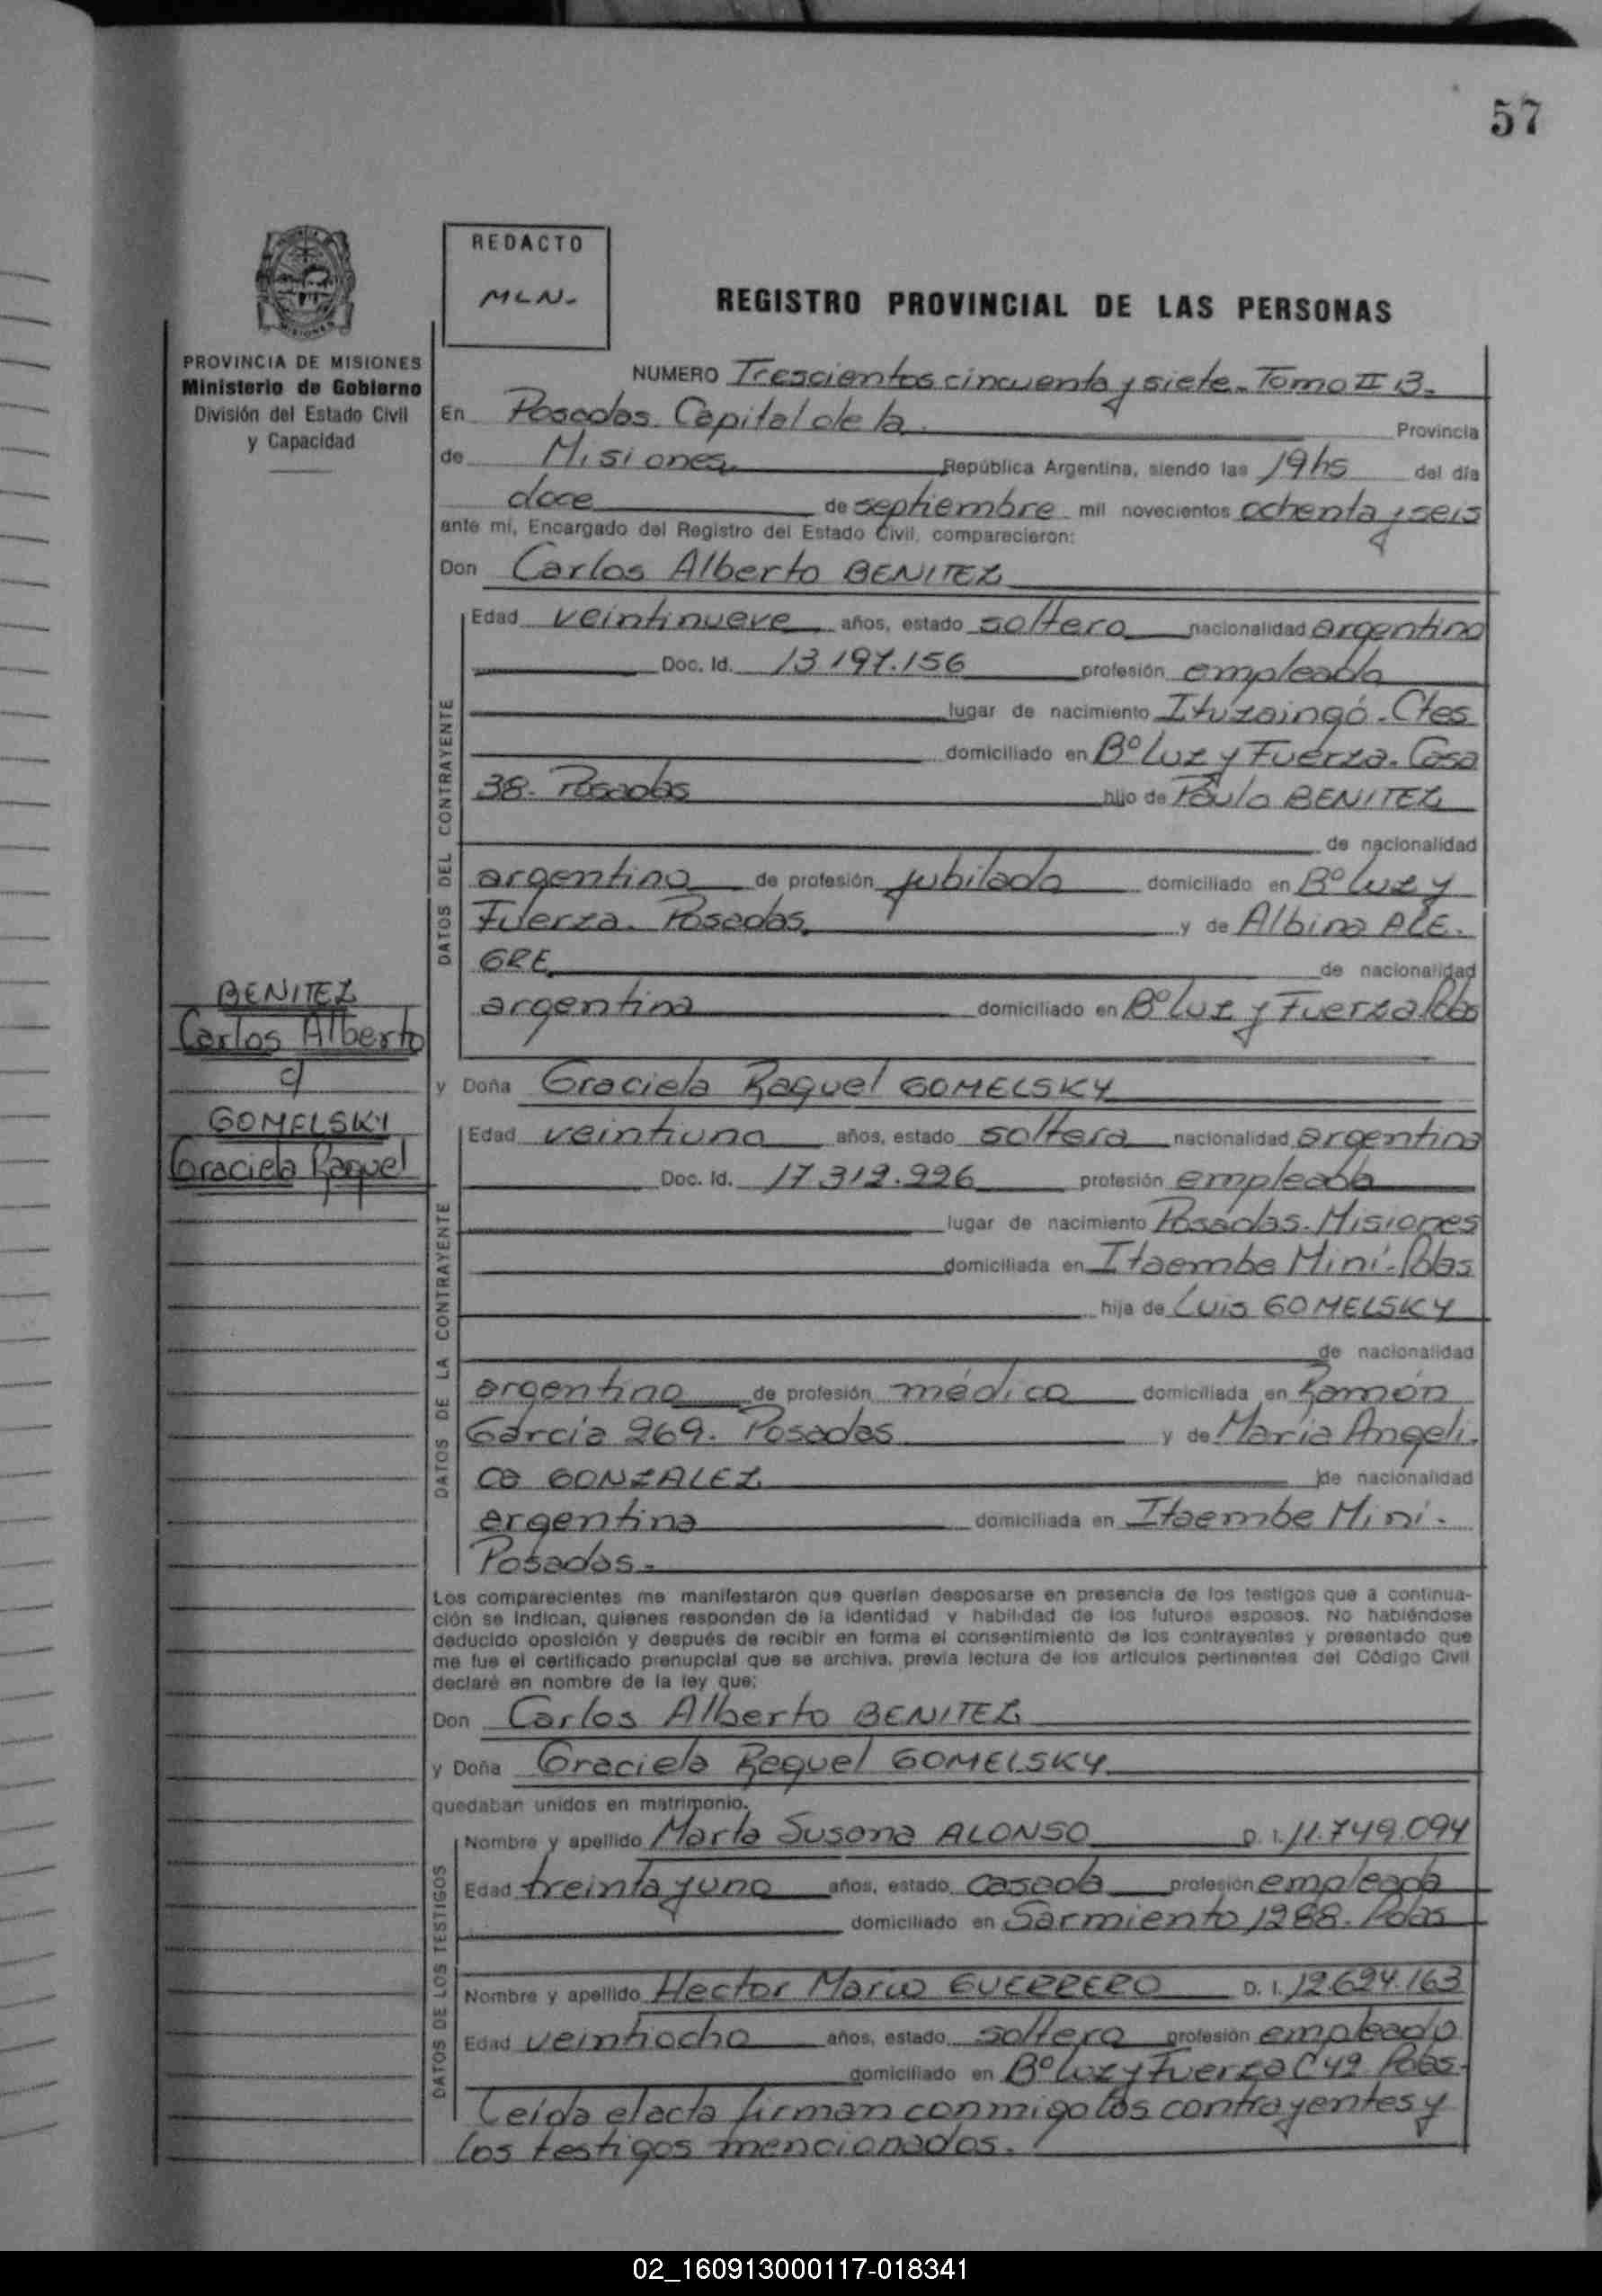 57
REDACTO
MLN.
REGISTRO PROVINCIAL DE LAS PERSONAS
PROVINCIA DE MISIONES
Ministerio de Gobierno
División del Estado Civil
y Capacidad
NUMERO Trescientos cincuenta y siete. Tomo II B.
En Posadas. Capital de la Provincia
de Misiones República Argentina, siendo las 19hs del día
doce de septiembre mil novecientos ochenta y seis
ante mí, Encargado del Registro del Estado Civil, comparecieron:
Don Carlos Alberto BENITEZ
DATOS DEL CONTRAYENTE
Edad veintinueve años, estado soltero nacionalidad argentino
Doc. Id. 13.197.156 profesión empleado
lugar de nacimiento Ituzaingó. Ctes
domiciliado en Bº Luz y Fuerza. Casa
38. Posadas hijo de Paulo BENITEZ
de nacionalidad
argentino de profesión jubilado domiciliado en Bº Luz y
Fuerza. Posadas y de Albina ALE.
GRE de nacionalidad
argentina domiciliado en Bº Luz y Fuerza Pdas
BENITEZ
Carlos Alberto
c/
GOMELSKY
Graciela Raquel
y Doña Graciela Raquel GOMELSKY
DATOS DE LA CONTRAYENTE
Edad veintiuno años, estado soltera nacionalidad argentina
Doc. Id. 17.312.226 profesión empleada
lugar de nacimiento Posadas. Misiones
domiciliada en Itaembe Miní. Pdas
hija de Luis GOMELSKY
de nacionalidad
argentino de profesión médico domiciliada en Ramón
García 269. Posadas y de María Angeli.
ca GONZALEZ de nacionalidad
argentina domiciliada en Itaembe Miní.
Posadas.
Los comparecientes me manifestaron que querían desposarse en presencia de los testigos que a continua-
ción se indican, quienes responden de la identidad y habilidad de los futuros esposos. No habiéndose
deducido oposición y después de recibir en forma el consentimiento de los contrayentes y presentado que
me fue el certificado prenupcial que se archiva, previa lectura de los artículos pertinentes del Código Civil
declaré en nombre de la ley que:
Don Carlos Alberto BENITEZ
y Doña Graciela Raquel GOMELSKY
quedaban unidos en matrimonio.
DATOS DE LOS TESTIGOS
Nombre y apellido Marta Susana ALONSO D. I. 11.749.094
Edad treinta y uno años, estado casada profesión empleada
domiciliado en Sarmiento 1288. Pdas
Nombre y apellido Hector Mario GUERRERO D. I. 12.624.163
Edad veintiocho años, estado soltero profesión empleado
domiciliado en Bº Luz y Fuerza C 42 Pdas.
Leída el acta firman conmigo los contrayentes y
los testigos mencionados.
02_160913000117-018341